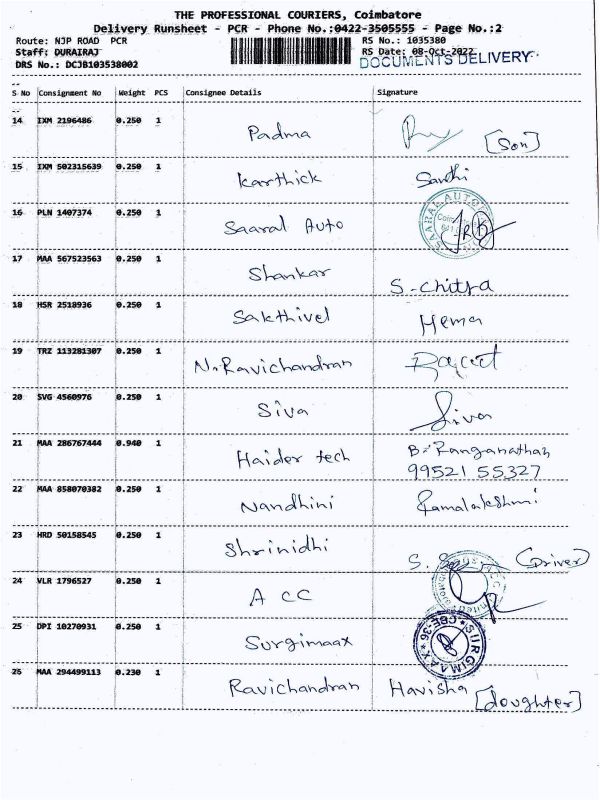 THE PROFESSIONAL COURIERS, Coimbatore
Delivery Runsheet - PCR - Phone No.:0422-3505555 - Page No.:2
Route: NJP ROAD PCR RS No.: 1035380
Staff: DURAIRAJ RS Date: 08-Oct-2022
DRS No.: DCJB103538002 DOCUMENTS DELIVERY
S No Consignment No Weight PCS Consignee Details Signature
14 IXM 2196486 0.250 1 Padma [Son]
15 IXM 502315639 0.250 1 Karthick Santhi
16 PLN 1407374 0.250 1 Saaral Auto SAARAL AUTO
17 MAA 567523563 0.250 1 Shankar S. Chitra
18 HSR 2518936 0.250 1 Sakthivel Hema
19 TRZ 113281307 0.250 1 N. Ravichandran
20 SVG 4560976 0.250 1 Siva Siva
21 MAA 286767444 0.940 1 Haider tech B. Ranganathan
99521 55327
22 MAA 858070382 0.250 1 Nandhini Ramalakshmi
23 HRD 50158545 0.250 1 Shrinidhi S. (Driver)
24 VLR 1796527 0.250 1 A CC
25 DPI 10270931 0.250 1 Surgimaax SURGIMAAX CBE-36
26 MAA 294499113 0.230 1 Ravichandran Havisha [doughter]